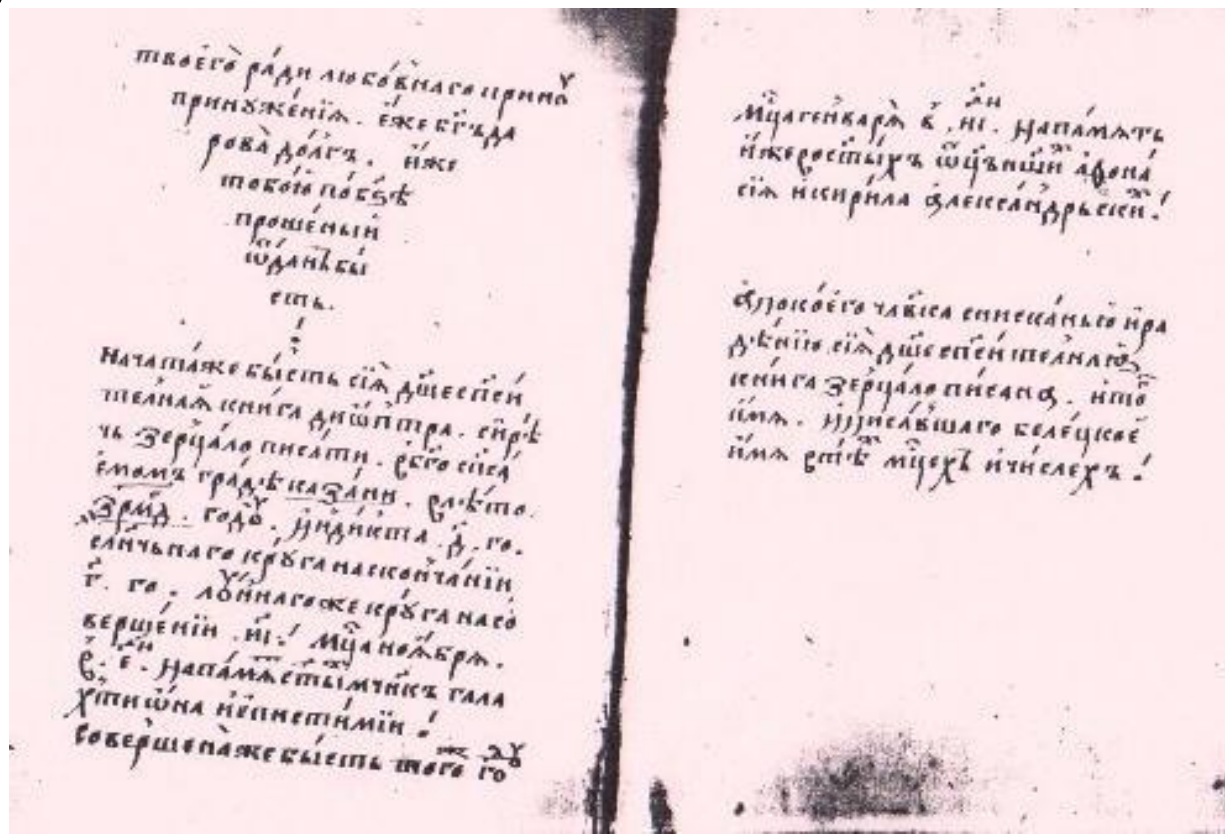 твоегѡ̀ ра́ди любо́внаго прину
принꙋже́нїѧ. е҆́же бг҃ъ да
рова̀ до́лгъ. и҆́же
тобо́ю по бз҃ѣ
проше́ный
ѿда́нъ бы
сть.
Нача́та же бы́сть сїѧ̀ дш҃еспⷭ҇и́
те́лнаѧ кни́га дио́птра. си́рѣ
чь зерца́ло писа́ти. въ
е́момъ гра́дѣ каза́ни. в лѣ́то.
҂зрм҃д. го́дꙋ. и҆нди́кта .д҃. го.
сл҃нчьнаго крꙋ́га на сконча́нїи
г҃. го. лꙋ́ннаго же крꙋ́га на со
верше́нїи .и҃і. мцⷭ҇а ноѧ́брѧ.
в .е҃. на па́мѧть ст҃ы́хъ мч҃нкъ гала
хтиѡ́на и҆ е҆писти́мїи
соверше́на же бы́сть того́ же го
Мцⷭ҇а генва́рѧ в .и҃і. на па́мѧть
и҆́же во ст҃ы́хъ ѻ҆ц҃ъ на́шихъ а҆фона́
сїѧ и҆ кири́ла а҆леѯа́ндрьскихъ
а҆ по кое́го чл҃вка сниска́нью и҆ ра
дѣ́нїю сїѧ̀ дш҃еспⷭ҇и́телнаѧ
кни́га зерца́ло пи́сана. и҆ то́
и҆́мѧ. и҆ писа́вшаго
и҆́мѧ в тѣ́хъ мцⷭ҇ехъ и҆ чи́слехъ